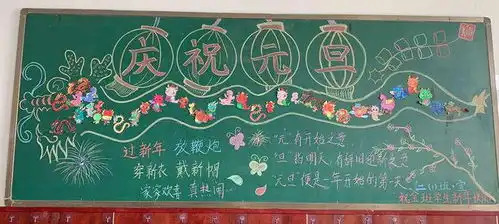 庆祝元旦
过新年 放鞭炮
穿新衣 戴新帽
家家欢喜 真热闹
"元"有开始之意
"旦"指明天,有辞旧迎新之意
"元旦"便是一年开始的第一天